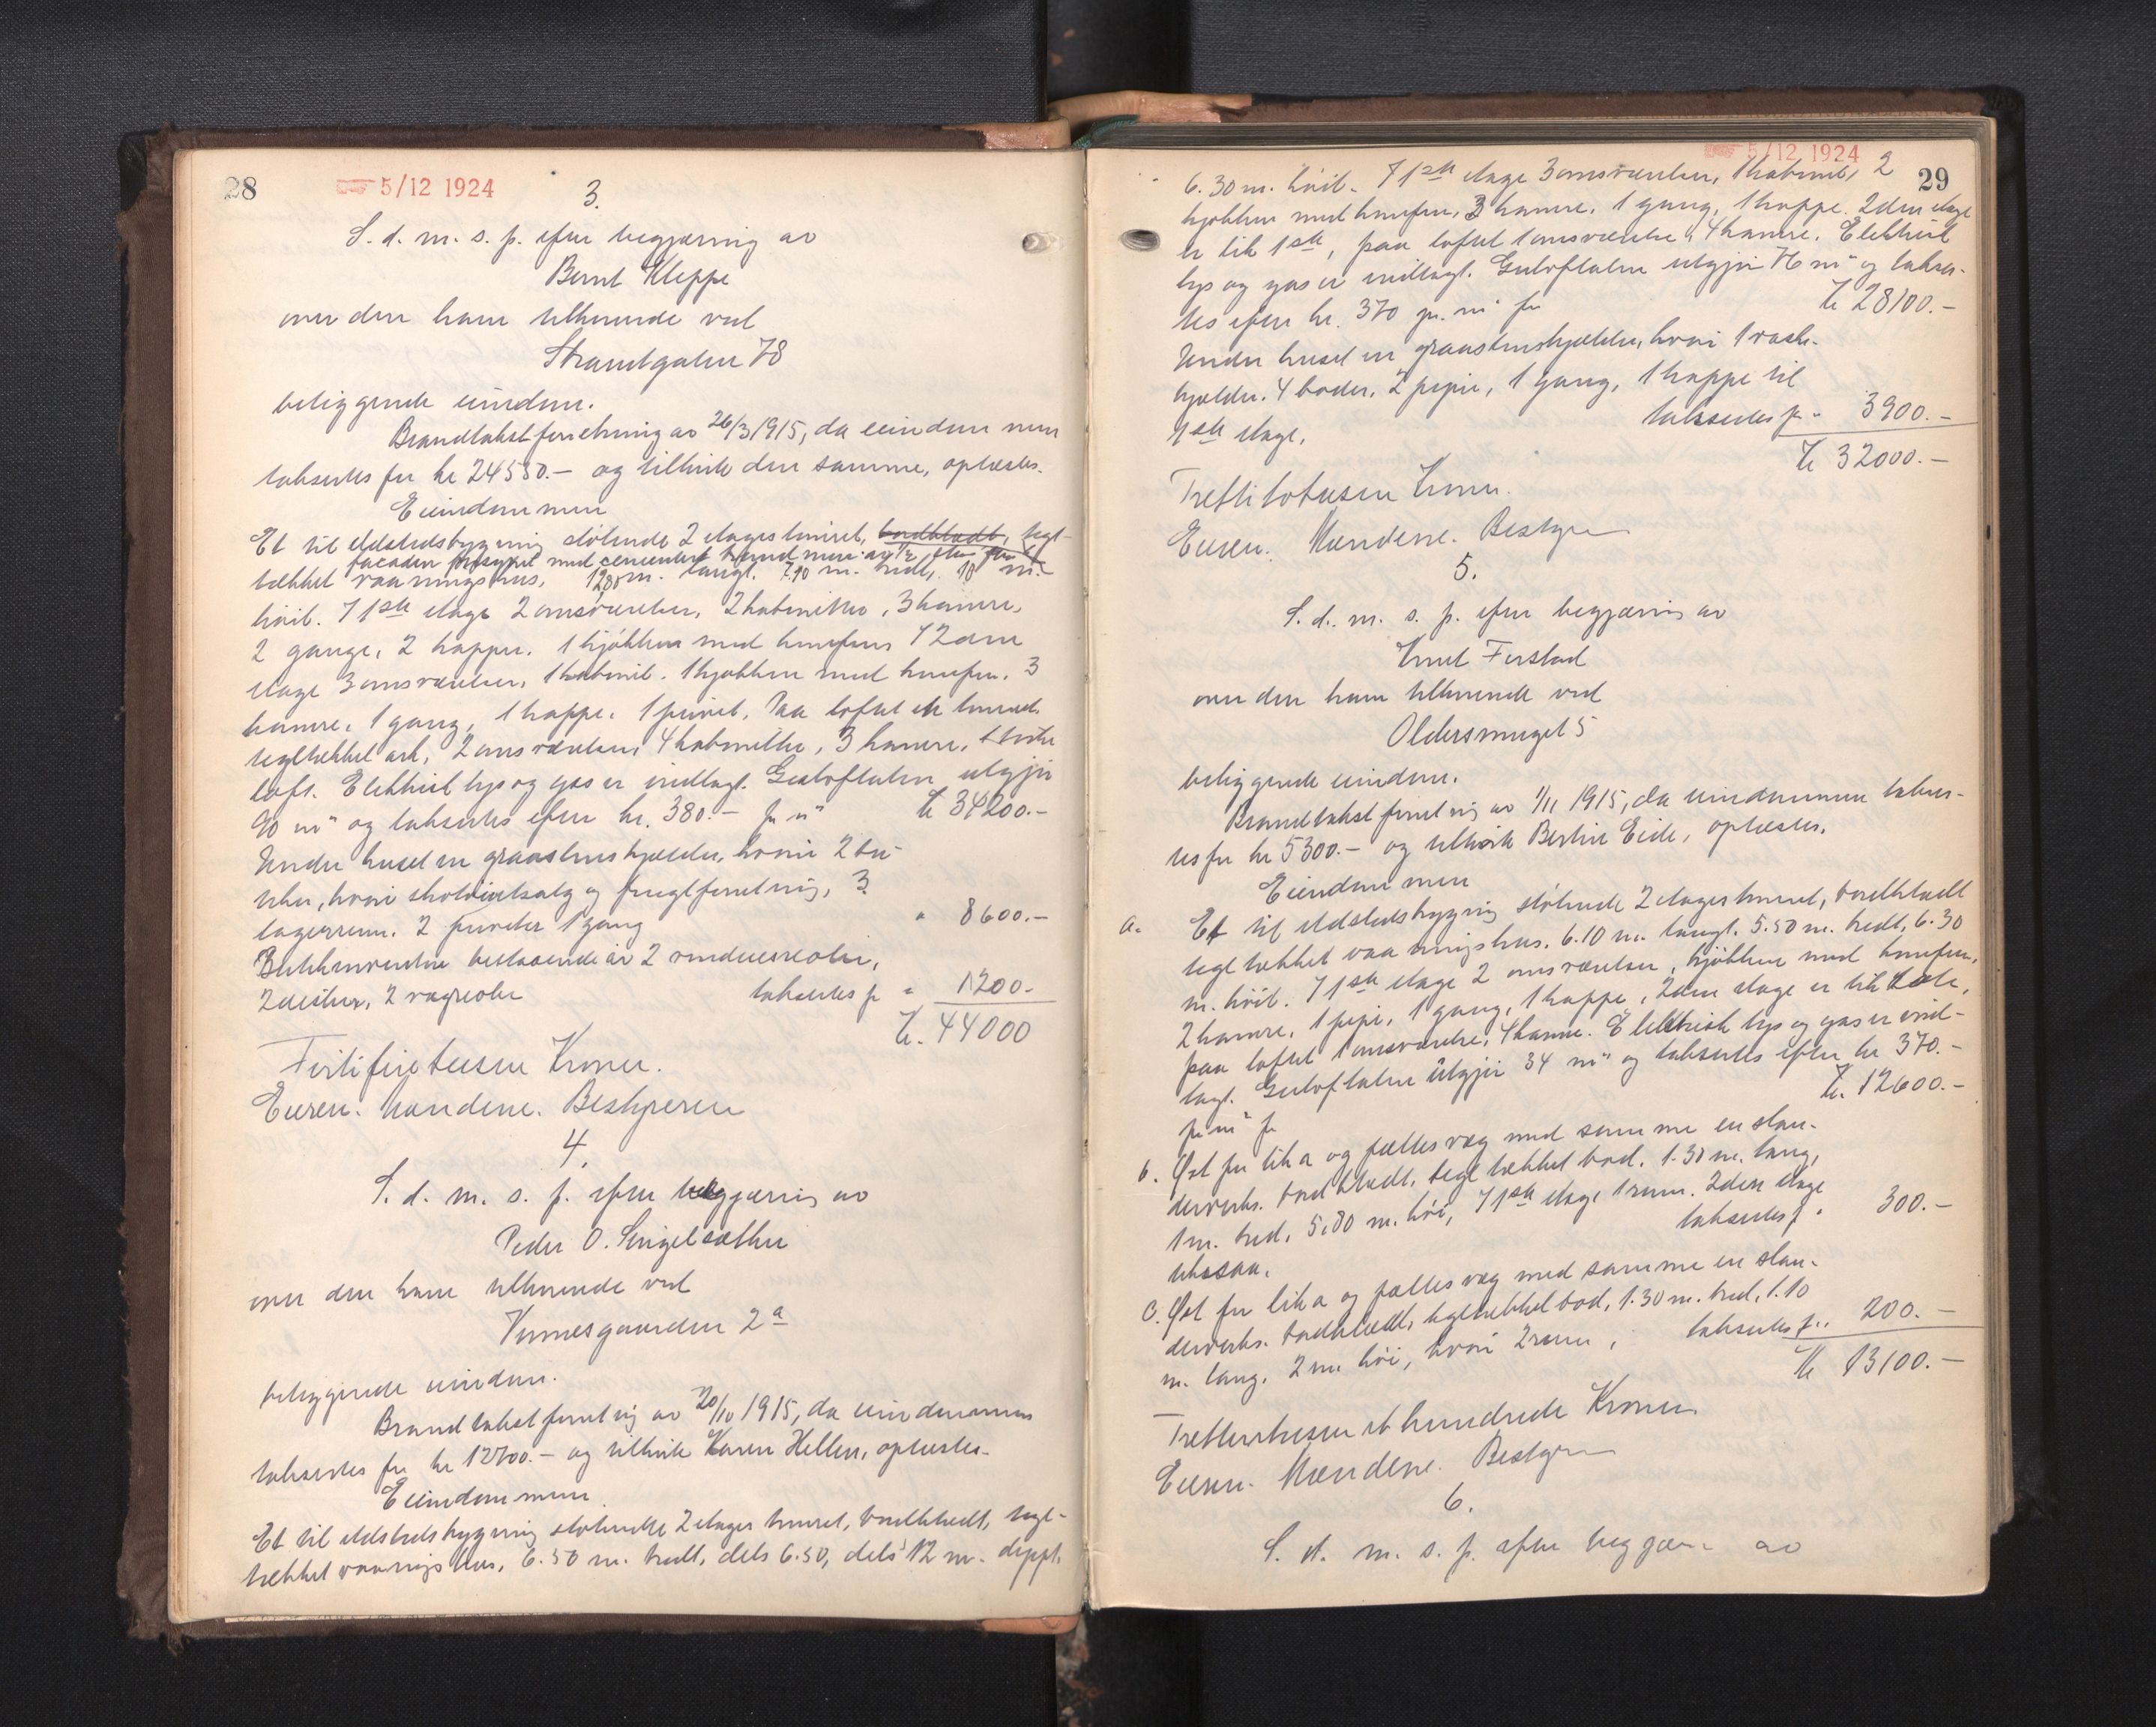 28
5/12 1924
3.
S. d. m. s. p. efter begjæring av
Bernt Kleppe
over den ham tilhørende ved
Strandgaten 78
beliggende eiendom.
Brandtakstforretning av 26/3 1915, da eiendommen
taksertes for kr 24550.- og tilhørte den samme, oplæstes.
Eiendommen
Et til ildstedsbygning støtende 2 etages tømret, bordklædt, tegl-
facaden med cementert brandmur av 1/2
tækket vaaningshus, 12.80 m. langt. 7.90 m. bredt, 10 m.
höit. I 1ste etage 2 omsværelser, 2 kabinetter, 3 kamre,
2 gange, 2 trapper, 1 kjökken med komfur. I 2den
etage 3 omsværelser, 1 kabinet. 1 kjøkken med komfur. 3
kamre, 1 gang, 1 trappe, 1 privet. Paa loftet et tømret
tegltækket ark, 2 omsværelser, 4 kabinetter, 3 kamre,
loft. Elektrisk lys og gas er indlagt. Gulvflaten utgjør
90 m² og taksertes efter kr. 380.- pr m² Kr 34200.-
Under huset en graastenskjælder, hvori 2 bu-
tikker, hvori skotöiutsalg og frugtforretning, 3
lagerrum. 2 priveter 1 gang " 8600.-
Butikinventar bestaaende av 2 vindusreoler,
2 diske, 2 vægreoler taksertes f " 1200.-
Kr. 44000
Førtifiretusen Kroner.
Eieren. Mændene. Bestyreren
4.
S. d. m. s. p. efter begjæring av
Peder O. Singelsæther
over den ham tilhørende ved
Vinnesgaarden 2a
beliggende eiendom.
Brandtakstforretning av 20/10 1915, da eiendommen
taksertes for kr 12700.- og tilhørte Karen Hellen, oplæstes.
Eiendommen
Et til ildstedsbygning støtende 2 etages tømret, bordklædt, tegl-
tækket vaaningshus, 6.50 m. bredt, dels 6.50, dels 12 m. dypt,
5/12 1924
29
6.30 m. höit. I 1ste etage 3 omsværelser, 1 kabinet, 2
kjøkken med komfur, 3 kamre, 1 gang, 1 trappe. 2den etage
er lik 1ste, paa loftet 1 omsværelse, 4 kamre. Elektrisk
lys og gas er indlagt. Gulvflaten utgjør 76 m² og takser-
tes efter kr. 370 pr. m² for Kr 28100.-
Under huset en graastenskjælder, hvori 1 vaske-
kjælder. 4 boder, 2 piper, 1 gang, 1 trappe til
1ste etage, taksertes f " 3900.-
Kr 32000.-
Trettitotusen Kroner.
Eieren. Mændene. Bestyren
5.
S. d. m. s. p. efter begjæring av
Knut Ferstad
over den ham tilhørende ved
Oldersmuget 5
beliggende eiendom.
Brandtakstforretning av 1/11 1915, da eiendommen takser-
tes for kr 5300.- og tilhørte Bertin Eide, oplæstes.
Eiendommen
a. Et til ildstedsbygning støtende 2 etages tømret, bordklædt
tegltækket vaaningshus. 6.10 m. langt. 5.50 m. bredt, 6.30
m. höit. I 1ste etage 2 omsværelser, kjökken med komfur,
2 kamre, 1 pipe, 1 gang, 1 trappe, 2den etage er lik 1ste,
paa loftet 1 omsværelse, 4 kamre. Elektrisk lys og gas er ind-
lagt. Gulvflaten utgjør 34 m² og taksertes efter kr 370.-
pr m² for Kr. 12600.-
b. Øst for lit. a og fællesvæg med samme en stan-
derverks. bordklædt, tegltækket bod. 1.30 m. lang,
1 m. bred, 5.80 m. höi, I 1ste etage 1 rum. 2den etage
likesaa. taksertes f " 300.-
c. Øst for lit a og fællesvæg med samme en stan-
derverks. bordklædt, tegltækket bod, 1.30 m. bred, 1.10
m. lang, 2 m. höi, hvori 2 rum, taksertes f " 200.-
Kr 13100.-
Trettentusen et hundrede Kroner.
Eieren. Mændene. Bestyren
6.
S. d. m. s. p. efter begjær. av